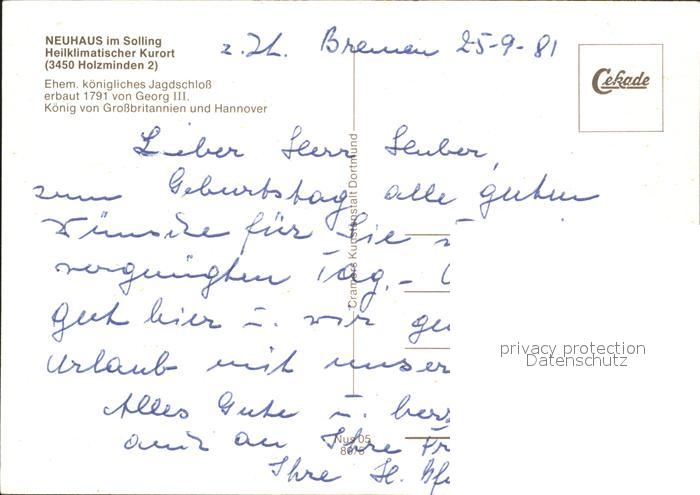 NEUHAUS im Solling
Heilklimatischer Kurort
(3450 Holzminden 2)
Ehem. königliches Jagdschloß
erbaut 1791 von Georg III.
König von Großbritannien und Hannover
z. Zt. Bremen 25-9-81
Cekade
Lieber Herr
zum Geburtstag alle guten
Wünsche für Sie u
vergnügten Tag. -
gut hier u. wir
Urlaub mit unser
Alles Gute u.
auch an Ihre Fr
Ihre H.
Cramers Kunstanstalt Dortmund
Nus 05
privacy protection
Datenschutz